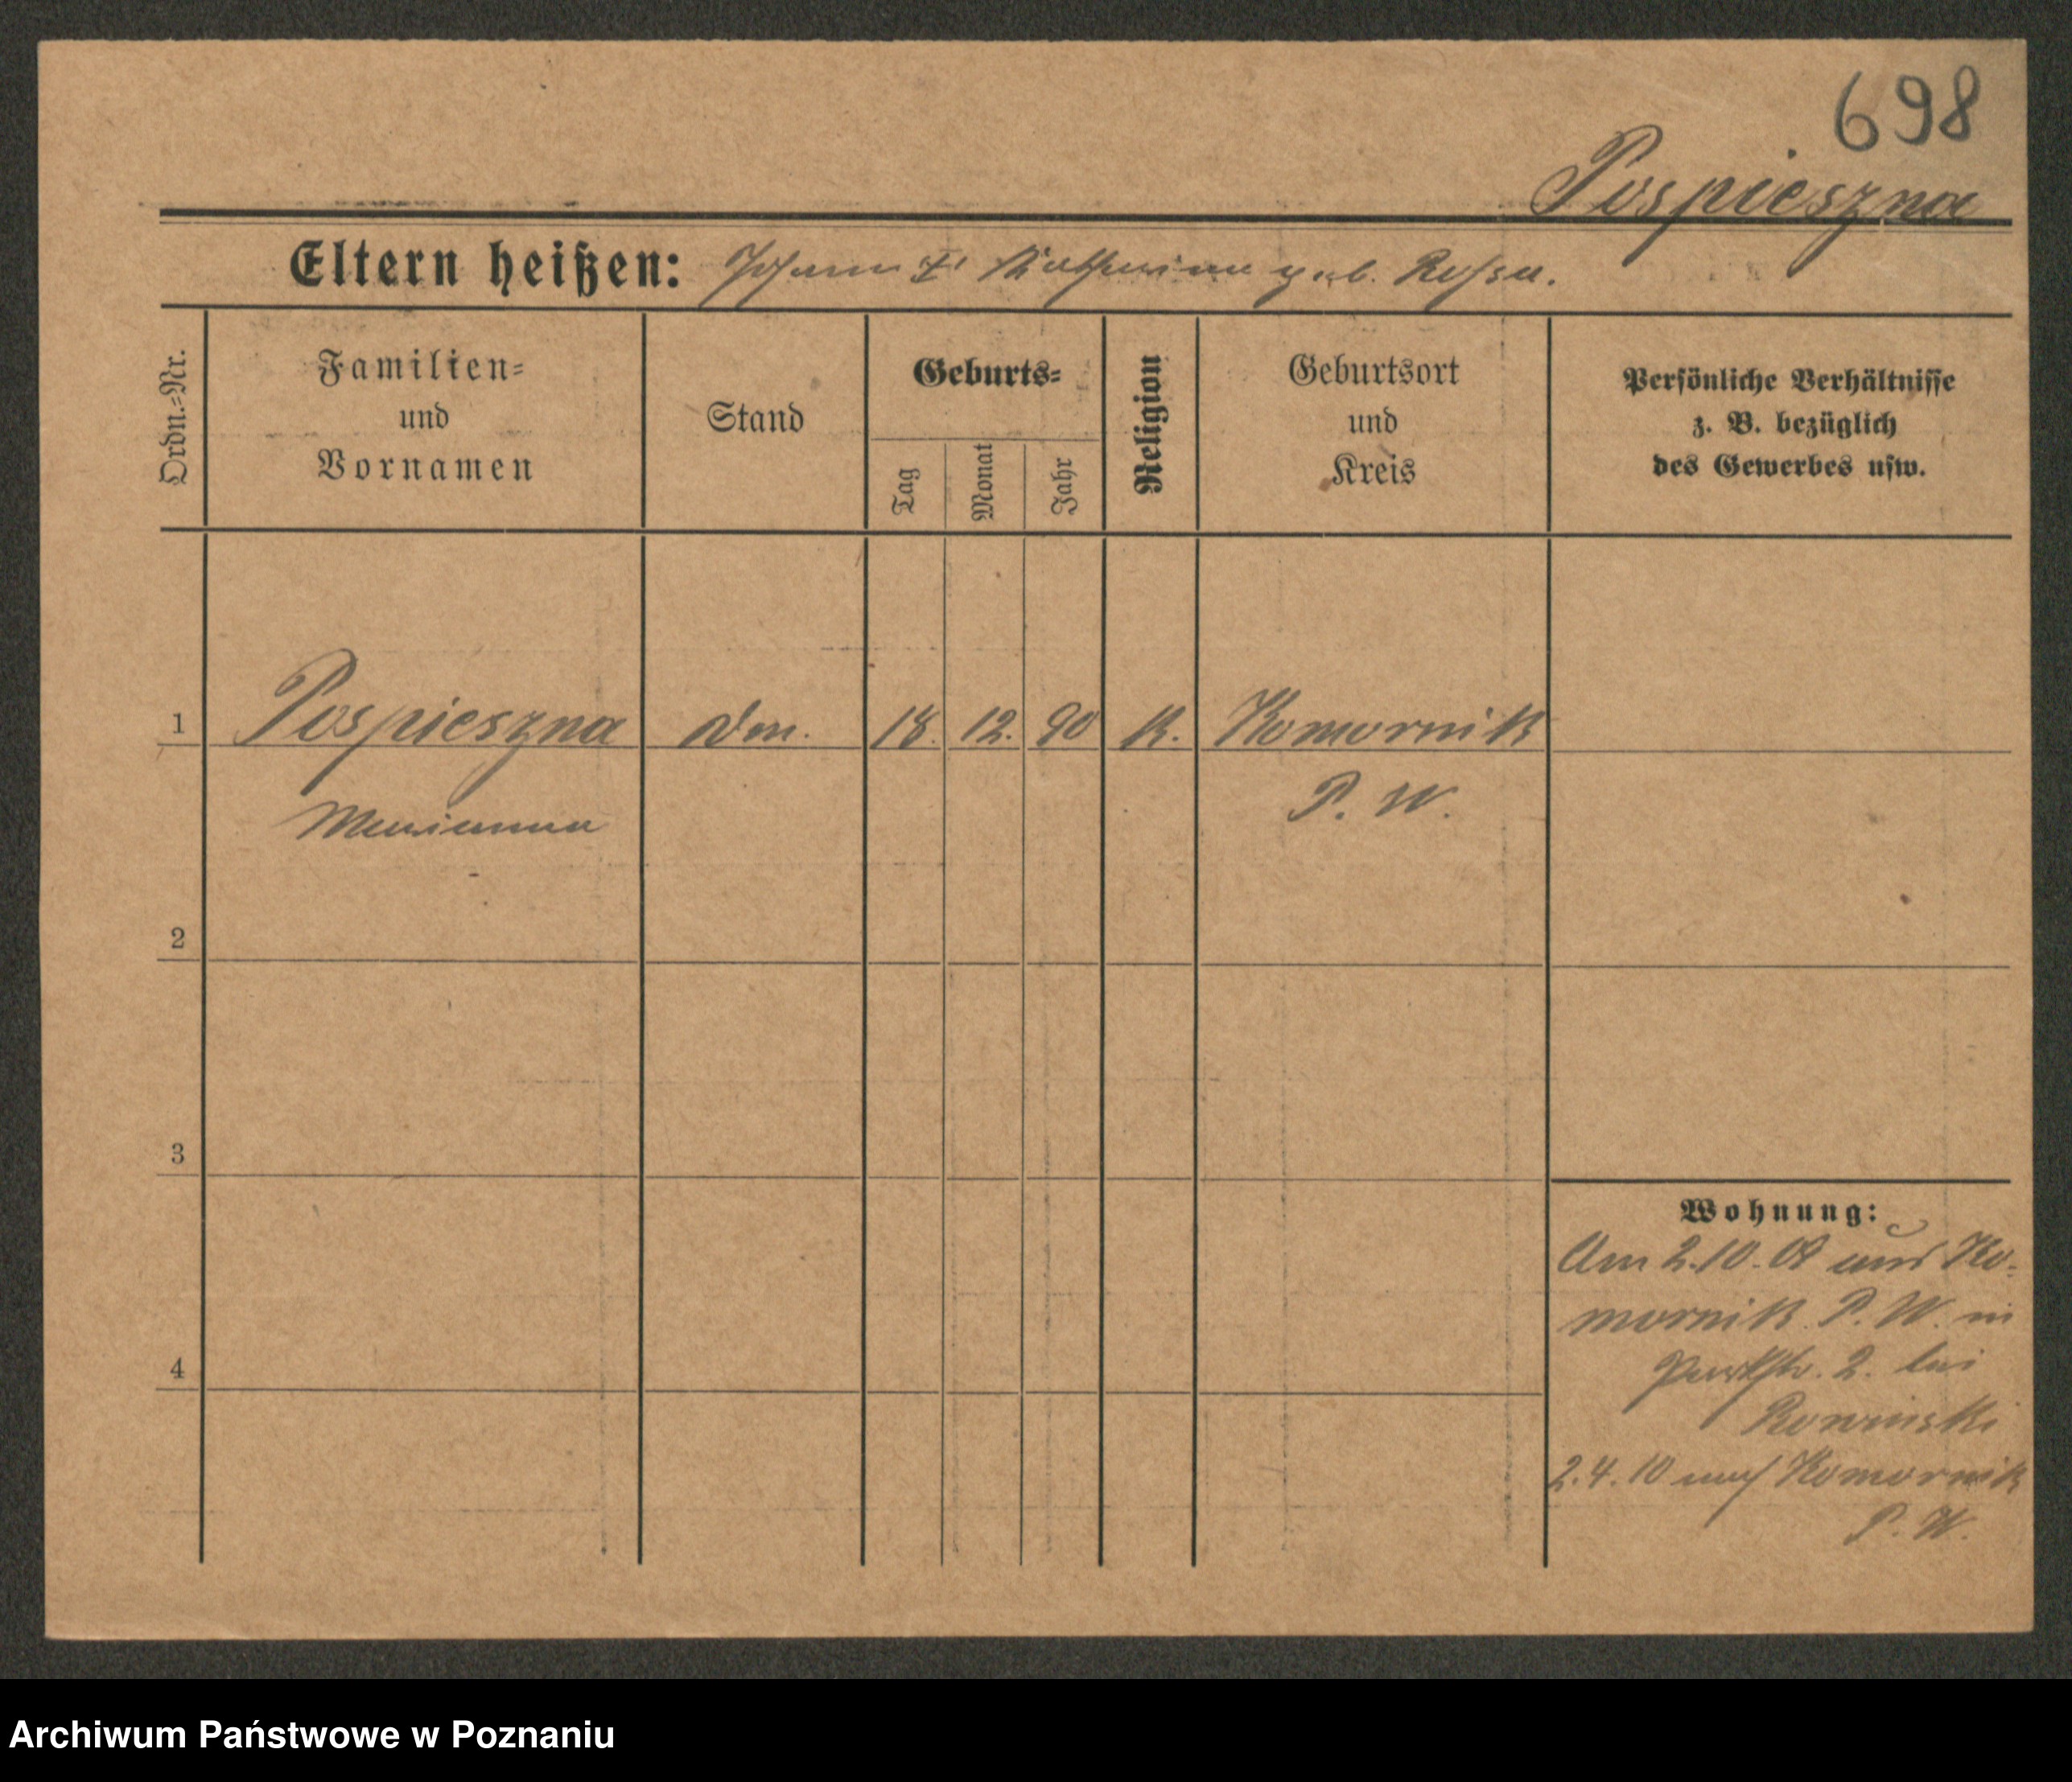 698
Pospieszna
Eltern heißen: Johann u. Katharina geb. Rossa.
Ordn.=Nr.
Familien=
und
Vornamen
Stand
Geburts=
Tag
Monat
Jahr
Religion
Geburtsort
und
Kreis
Persönliche Verhältnisse
z. B. bezüglich
des Gewerbes usw.
1 Pospieszna 18. 12. 90 K. Komornik
Marianna P. W.
2
3
4
Wohnung:
Am 2.10.09 aus Ko-
mornik P. W. in
Parkstr. 2. bei
2.4.10 nach Komornik
P. W.
Archiwum Państwowe w Poznaniu